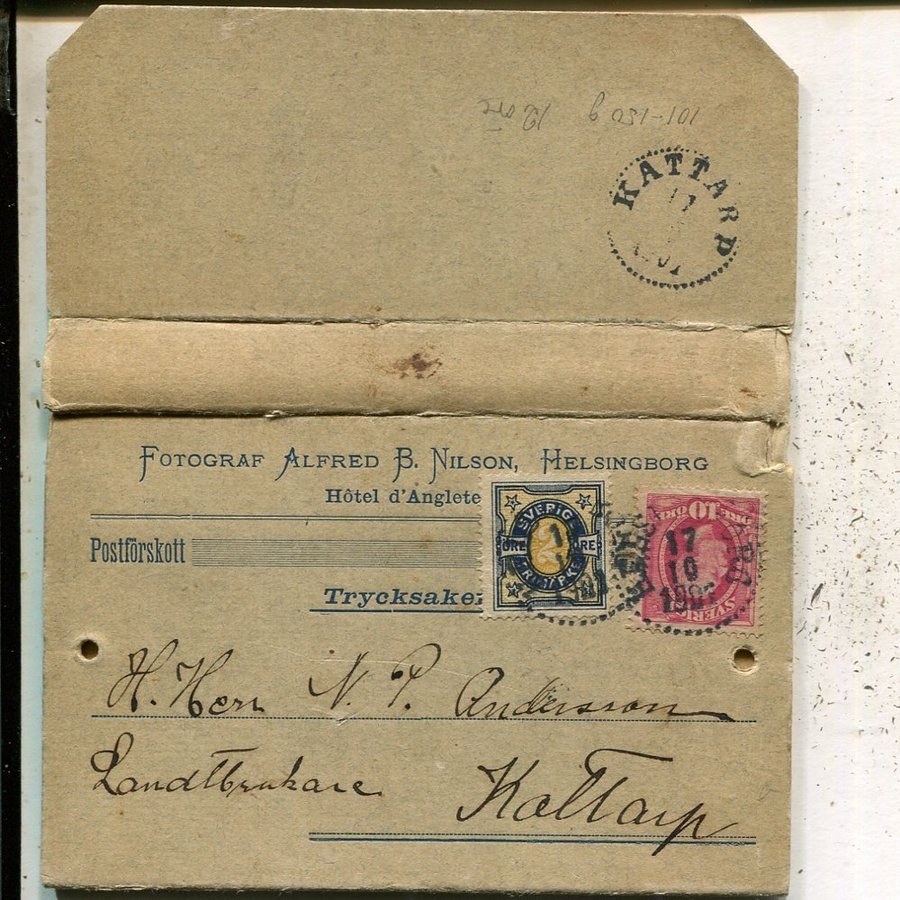 101-150 g 12 öre
KATTARP
17
FOTOGRAF ALFRED B. NILSON, HELSINGBORG
Hôtel d'Anglete
Postförskott
Trycksaker
SVERIGE
2
ÖRE ÖRE
FRIMÄRKE
10 ÖRE
SVERIGE
17
10
190
H. Herr N. P. Andersson
Landtbrukare
Kattarp